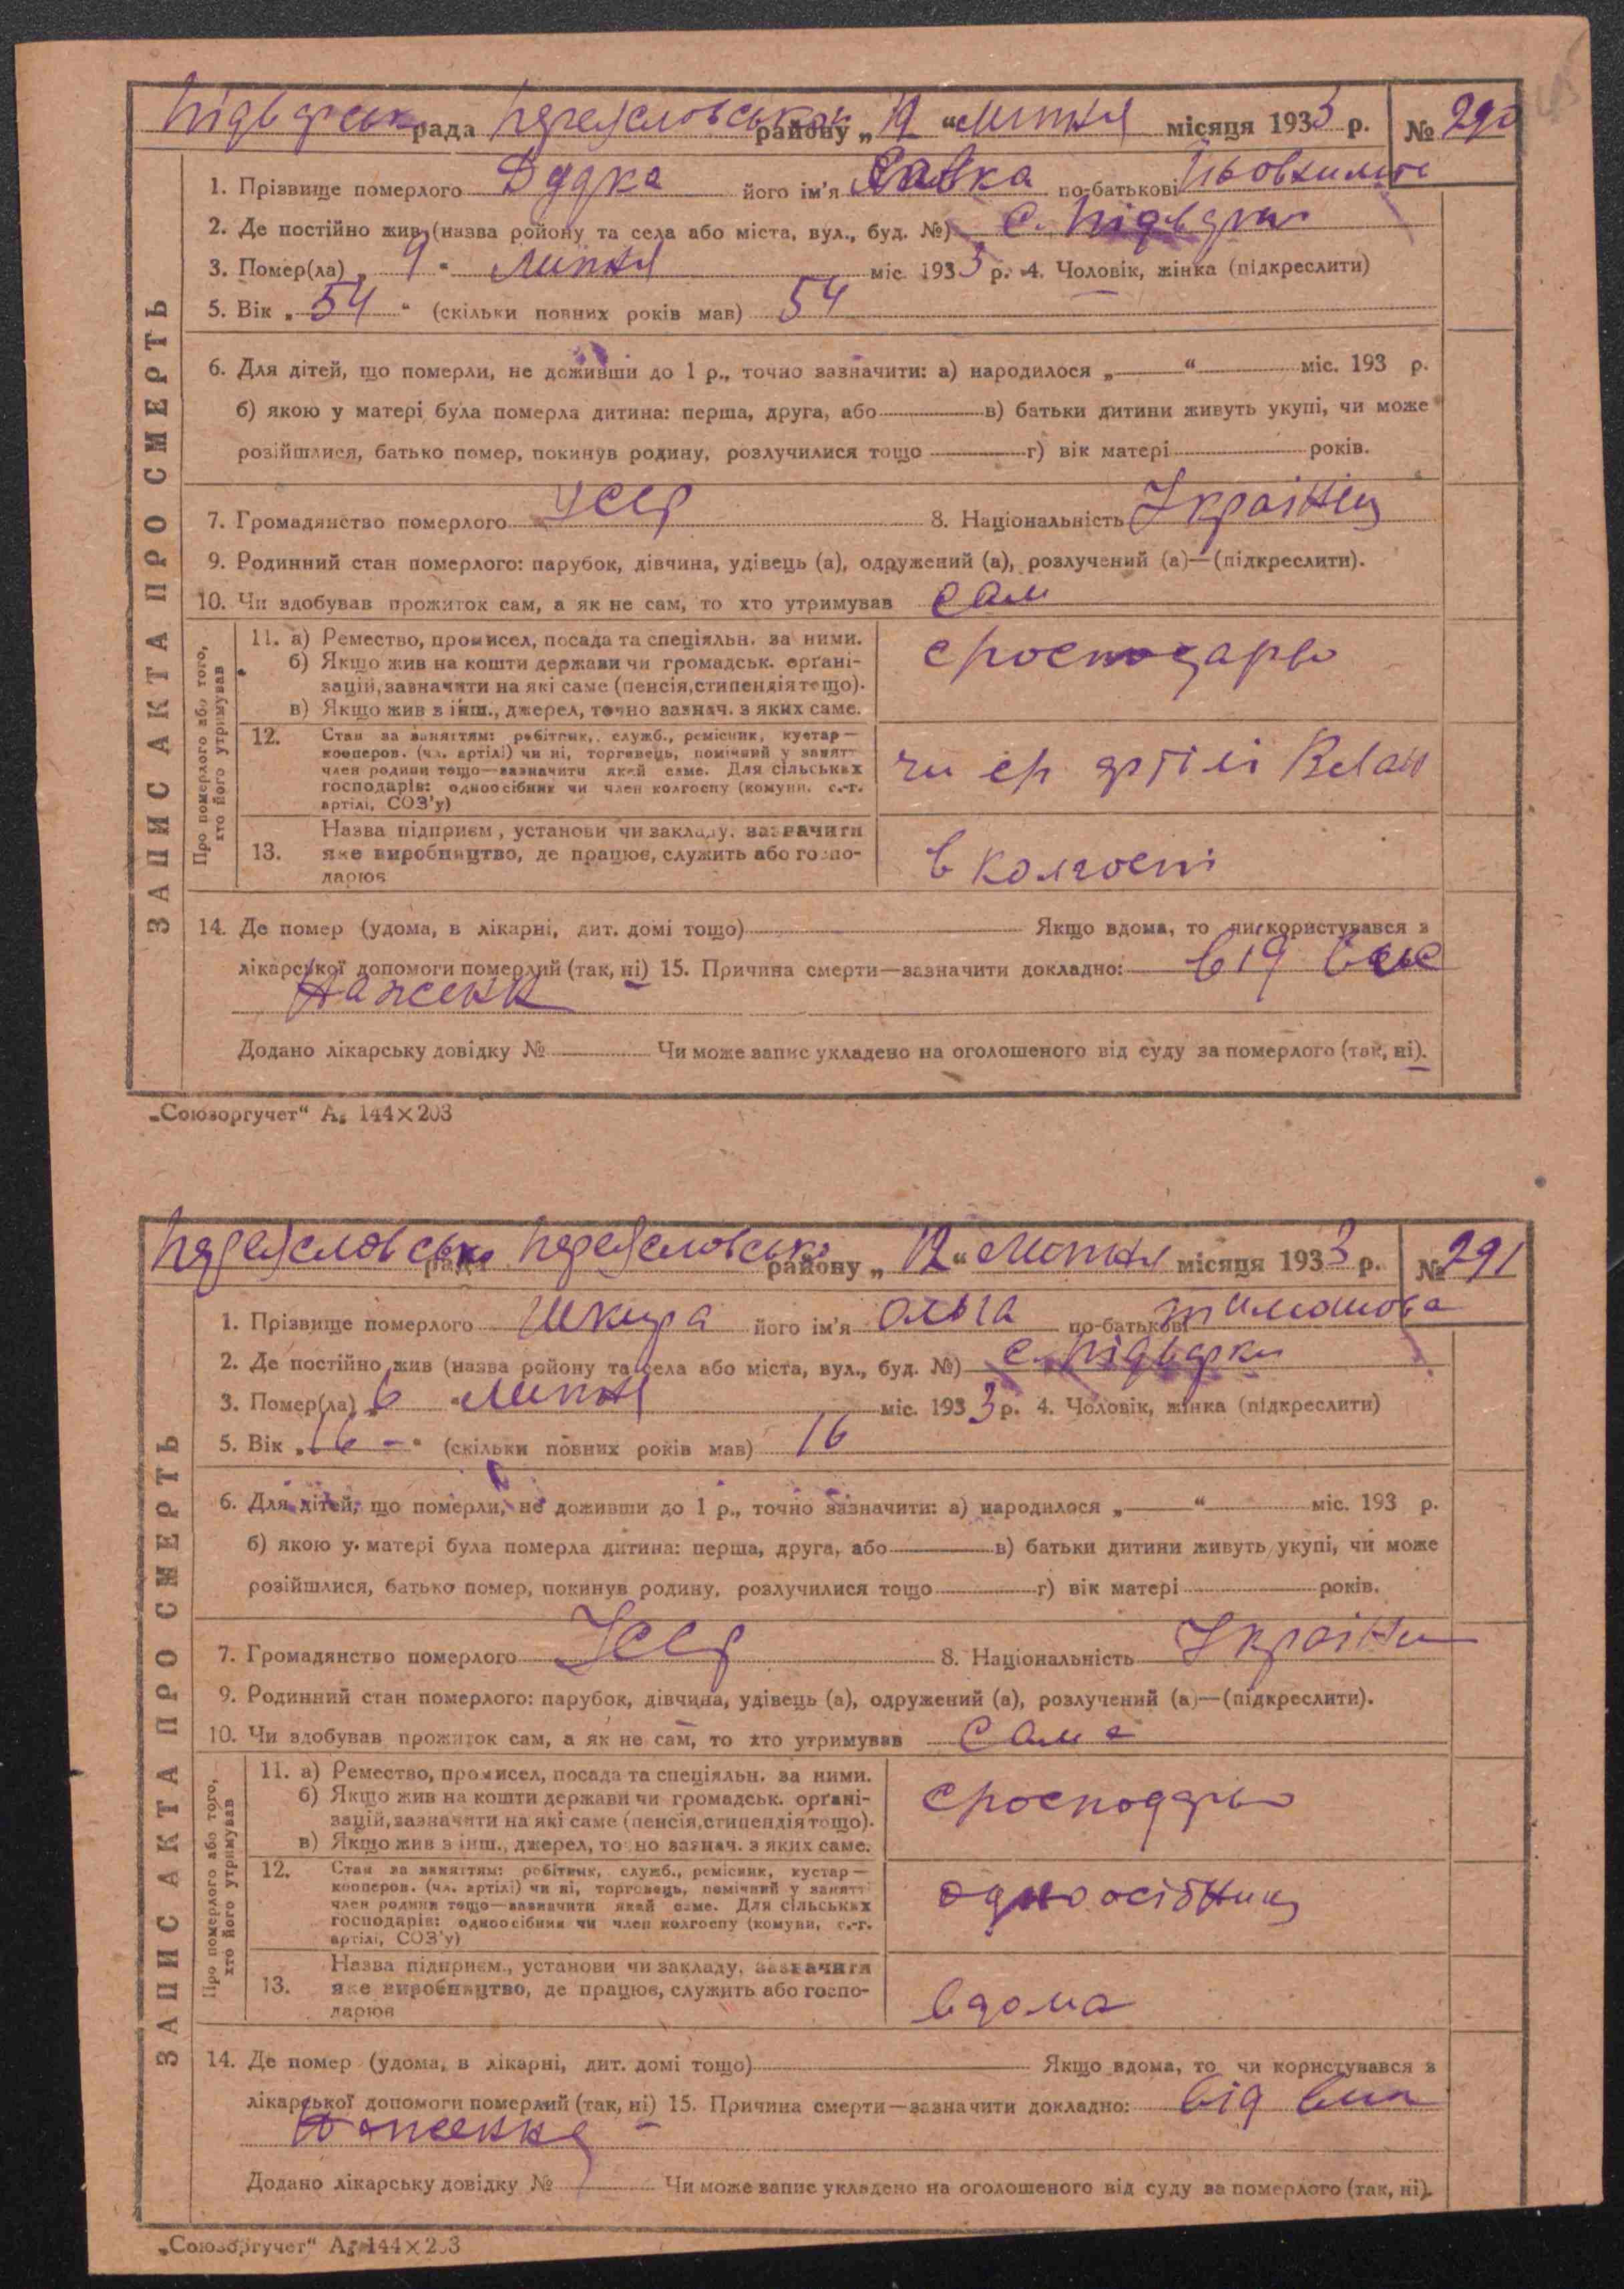 Підварськ рада Переяславської району „12 “ липня місяця 1933 р. № 290
1. Прізвище померлого Дудка його ім'я Савка по-батькові
2. Де постійно жив (назва ройону та села або міста, вул., буд. №) с. Підварки
3. Помер(ла) „ 9 “ липня міс. 1933 р. 4. Чоловік, жінка (підкреслити)
5. Вік „ 54 “ (скільки повних років мав) 54
6. Для дітей, що померли, не доживши до 1 р., точно зазначити: а) народилося „ “ міс. 193 р.
б) якою у матері була померла дитина: перша, друга, або в) батьки дитини живуть укупі, чи може
розійшлися, батько помер, покинув родину, розлучилися тощо г) вік матері років.
7. Громадянство померлого Усср 8. Національність Українец
9. Родинний стан померлого: парубок, дівчина, удівець (а), одружений (а), розлучений (а)—(підкреслити).
10. Чи здобував прожиток сам, а як не сам, то хто утримував сам
Про померлого або того, хто його утримував
11. а) Ремество, промисел, посада та спеціяльн. за ними.
б) Якщо жив на кошти держави чи громадськ. органі-
зацій, зазначити на які саме (пенсія, стипендія тощо).
в) Якщо жив з інш., джерел, точно зазнач. з яких саме.
12. Стан за заняттям: робітник, служб., ремісник, кустар—
кооперов. (чл. артілі) чи ні, торговець, помічний у занятт
член родини тощо—зазначити який саме. Для сільських
господарів: одноосібник чи член колгоспу (комуни, с.-г.
артілі, СОЗ'у)
артілі
13. Назва підприєм., установи чи закладу, зазначити
яке виробництво, де працює, служить або госпо-
дарює
в колгоспі
14. Де помер (удома, в лікарні, дит. домі тощо) Якщо вдома, то чи користувався з
лікарської допомоги померлий (так, ні) 15. Причина смерти—зазначити докладно: від
Додано лікарську довідку № Чи може запис укладено на оголошеного від суду за померлого (так, ні).
ЗАПИС АКТА ПРО СМЕРТЬ
„Союзоргучет“ А₅ 144×203
рада району „ 12 “ липня місяця 1933 р. № 291
1. Прізвище померлого Шкира його ім'я Ольга по-батькові Тимошова
2. Де постійно жив (назва ройону та села або міста, вул., буд. №) с. Підварки
3. Помер(ла) „ 6 “ липня міс. 1933 р. 4. Чоловік, жінка (підкреслити)
5. Вік „ 16 “ (скільки повних років мав) 16
6. Для дітей, що померли, не доживши до 1 р., точно зазначити: а) народилося „ “ міс. 193 р.
б) якою у матері була померла дитина: перша, друга, або в) батьки дитини живуть укупі, чи може
розійшлися, батько помер, покинув родину, розлучилися тощо г) вік матері років.
7. Громадянство померлого Усср 8. Національність
9. Родинний стан померлого: парубок, дівчина, удівець (а), одружений (а), розлучений (а)—(підкреслити).
10. Чи здобував прожиток сам, а як не сам, то хто утримував сама
Про померлого або того, хто його утримував
11. а) Ремество, промисел, посада та спеціяльн. за ними.
б) Якщо жив на кошти держави чи громадськ. органі-
зацій, зазначити на які саме (пенсія, стипендія тощо).
в) Якщо жив з інш., джерел, точно зазнач. з яких саме.
12. Стан за заняттям: робітник, служб., ремісник, кустар—
кооперов. (чл. артілі) чи ні, торговець, помічний у занятт
член родини тощо—зазначити який саме. Для сільських
господарів: одноосібник чи член колгоспу (комуни, с.-г.
артілі, СОЗ'у)
одноосібниц
13. Назва підприєм., установи чи закладу, зазначити
яке виробництво, де працює, служить або госпо-
дарює
вдома
14. Де помер (удома, в лікарні, дит. домі тощо) Якщо вдома, то чи користувався з
лікарської допомоги померлий (так, ні) 15. Причина смерти—зазначити докладно: від
Додано лікарську довідку № Чи може запис укладено на оголошеного від суду за померлого (так, ні).
ЗАПИС АКТА ПРО СМЕРТЬ
„Союзоргучет“ А₅ 144×203